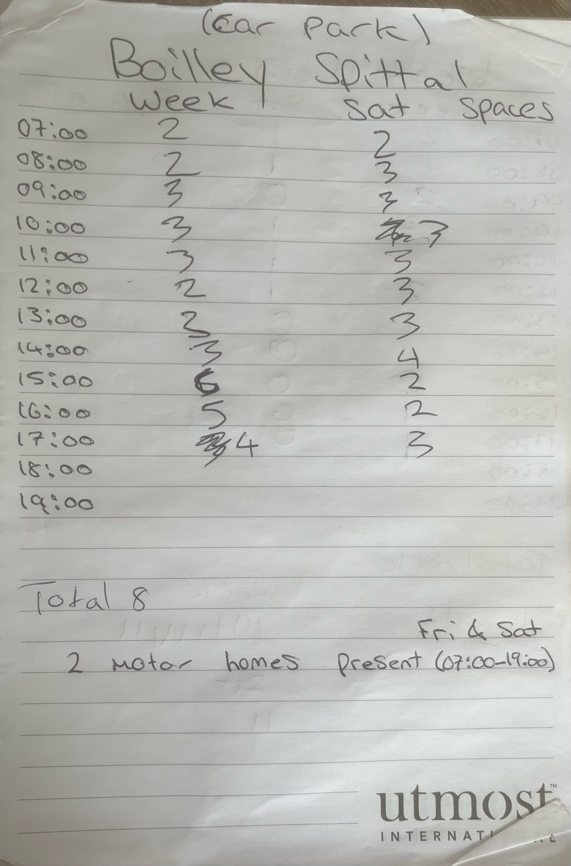 (Car Park)
Boilley Spittal
Week Sat Spaces
07:00 2 2
08:00 2 3
09:00 3 3
10:00 3 3
11:00 3 3
12:00 2 3
13:00 2 3
14:00 3 4
15:00 6 2
16:00 5 2
17:00 4 3
18:00
19:00
Total 8
Fri & Sat
2 Motor homes present (07:00-19:00)
utmost™
INTERNATI